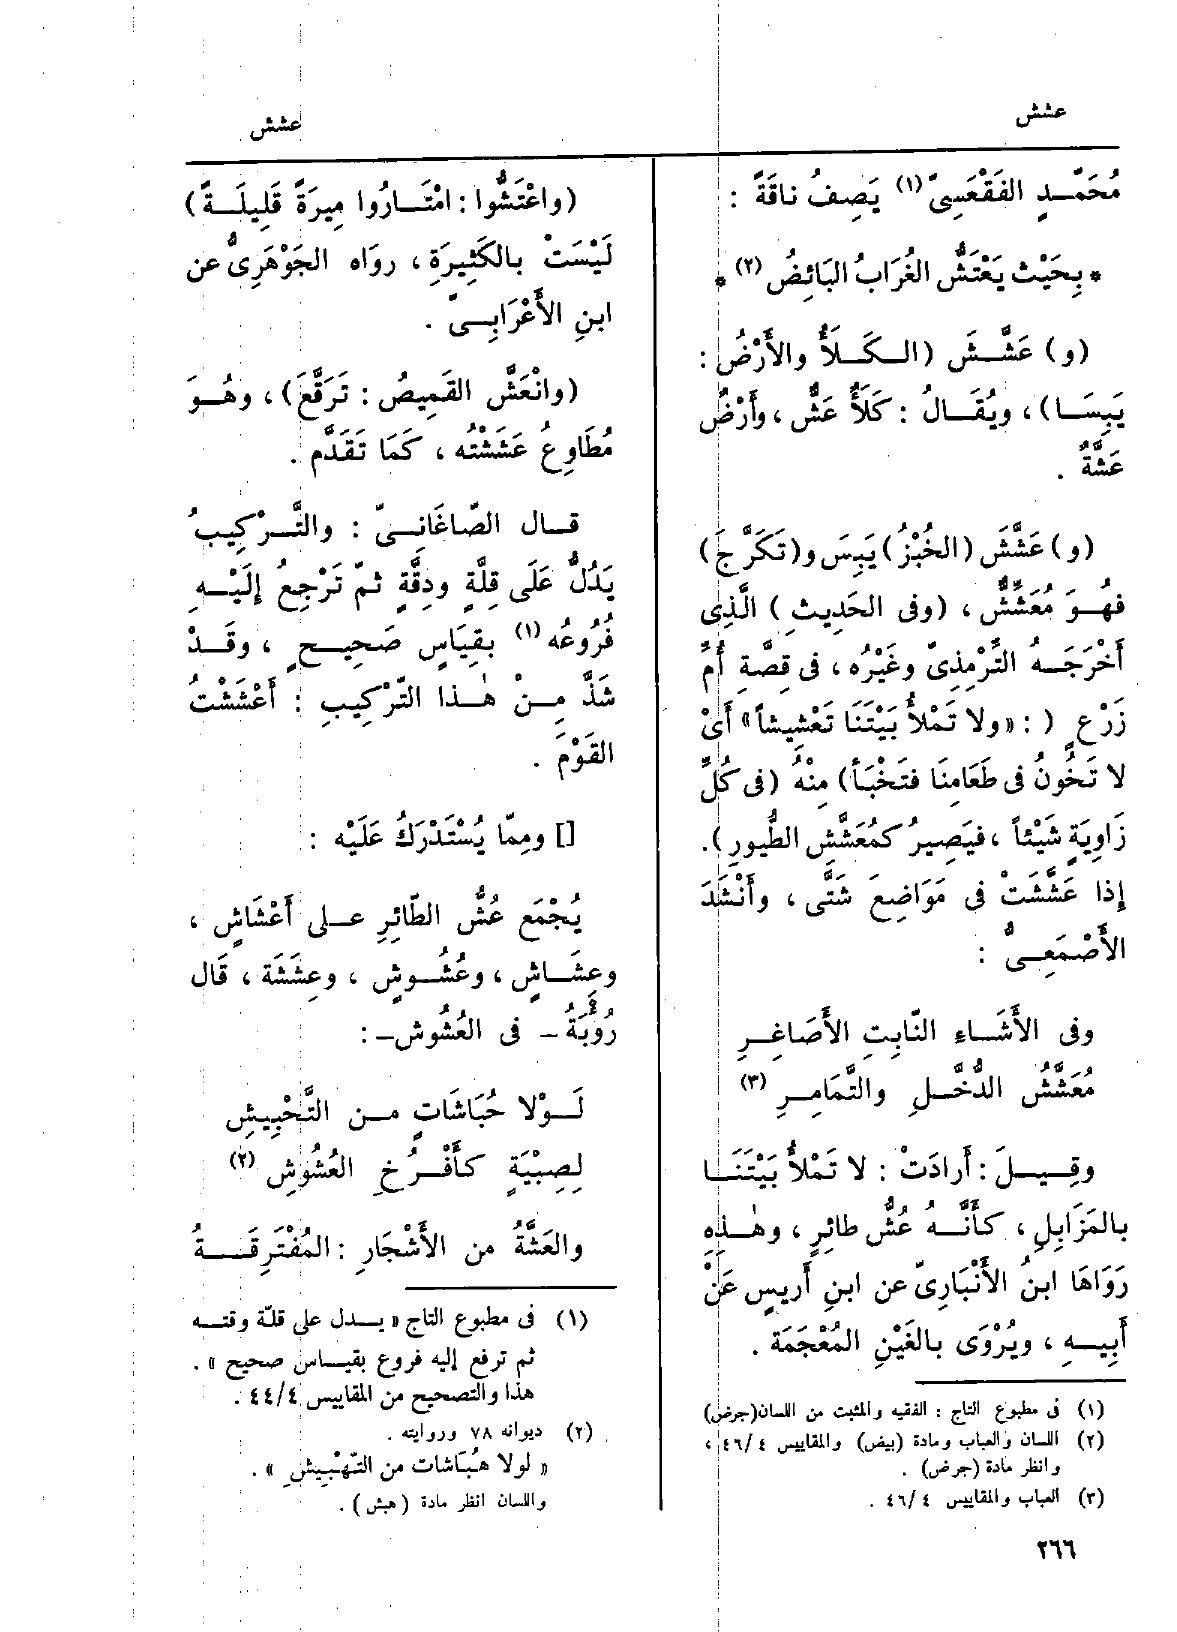 عشش
عشش
مُحَمَّدٍ الفَقْعَسِىّ (١) يَصِفُ ناقَةً :
* بِحَيْث يَعْتَشُّ الغُرَابُ البَائِضُ (٢) *
(و) عَشَّشَ (الكَلَأُ والأَرْضُ :
يَبِسَا) ، ويُقَالُ : كَلَأٌ عَشٌّ ، وأَرْضٌ
عَشَّةٌ .
(و) عَشَّشَ (الخُبْزُ) يَبِسَ و(تَكَرَّجَ)
فهُوَ مُعَشِّشٌ ، (وفى الحَدِيثِ) الَّذِى
أَخْرَجَهُ التِّرْمِذِىّ وغَيْرُه ، فى قِصَّةِ أُمِّ
زَرْعٍ ( : «ولا تَمْلأُ بَيْتَنَا تَعْشِيشاً» أَىْ
لا تَخُونُ فى طَعَامِنَا فتَخْبَأَ) مِنْهُ (فى كُلِّ
زَاوِيَةٍ شَيْئاً ، فيَصِيرُ كمُعَشَّشِ الطُّيورِ) .
إِذا عَشَّشَتْ فى مَوَاضِعَ شَتَّى ، وأَنْشَدَ
الأَصْمَعِىُّ :
وفى الأَشَاءِ النّابِتِ الأَصَاغِرِ
مُعَشَّشُ الدُّخَّلِ والتَّمَامِرِ (٣)
وقِيلَ : أَرادَتْ : لا تَمْلأُ بَيْتَنَا
بالمَزَابِلِ ، كأَنَّهُ عُشُّ طائِرٍ ، وهٰذِهِ
رَوَاهَا ابنُ الأَنْبَارِىّ عن ابنِ أَريسٍ عَنْ
أَبِيهِ ، ويُرْوَى بالغَيْنِ المُعْجَمَة .
(١) فى مطبوع التاج : الفقيه والمثبت من اللسان(جرض)
(٢) اللسان والعباب ومادة (بيض) والمقاييس ٤٦/٤ ،
وانظر مادة (جرض) .
(٣) العباب والمقاييس ٤٦/٤ .
(واعْتَشُّوا : امْتَارُوا مِيرَةً قَلِيلَةً)
لَيْسَتْ بالكَثِيرَةِ ، روَاه الجَوْهَرِىُّ عن
ابنِ الأَعْرَابِىّ .
(وانْعَشَّ القَمِيصُ : تَرَقَّعَ) ، وهُوَ
مُطَاوِعُ عَشَشْتُه ، كَمَا تَقَدَّم .
قال الصّاغَانِىّ : والتَّرْكِيبُ
يَدُلُّ عَلَى قِلَّةٍ ودِقَّةٍ ثمّ تَرْجِعُ إِلَيْهِ
فُرُوعُه (١) بقِيَاسٍ صَحِيحٍ ، وقَدْ
شَذَّ مِنْ هٰذا التّرْكِيبِ : أَعْشَشْتُ
القَوْمَ .
[] ومِمّا يُسْتَدْرَكُ عَلَيْه :
يُجْمَع عُشُّ الطّائِرِ على أَعْشَاشٍ ،
وعِشَاشٍ ، وعُشُوشٍ ، وعِشَشَة ، قَال
رُؤبَةُ - فى العُشُوش- :
لَوْلا حُبَاشَاتٍ من التَّحْبِيشِ
لِصِبْيَةٍ كأَفْرُخِ العُشُوشِ (٢)
والعَشَّةُ من الأَشْجَارِ : المُفْتَرِقَةُ
(١) فى مطبوع التاج «يدل على قلة وقته
ثم ترفع إليه فروع بقياس صحيح» .
هذا والتصحيح من المقاييس ٤٤/٤ .
(٢) ديوانه ٧٨ وروايته .
« لولا هُبَاشات من التّهْبِيشِ » .
واللسان انظر مادة (هبش) .
٢٦٦